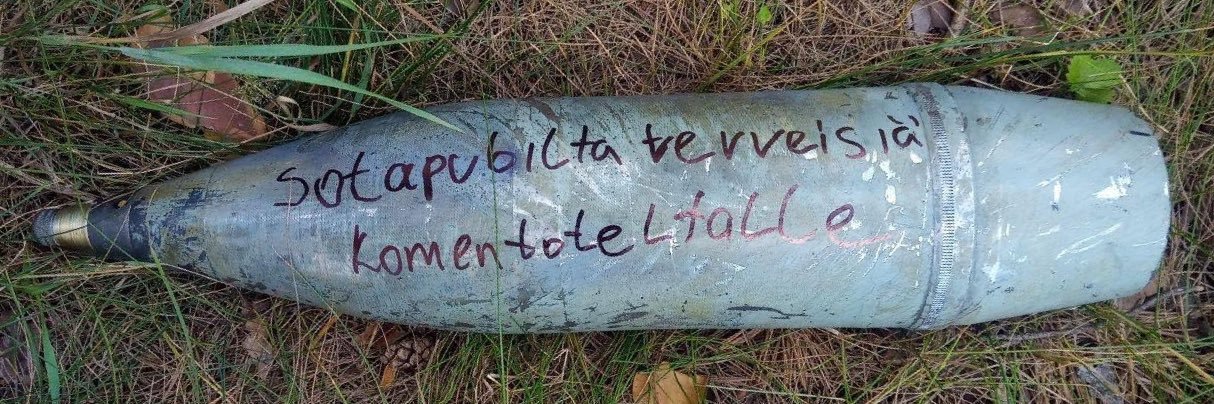 Sotapubilta terveisiä
Komentoteltalle